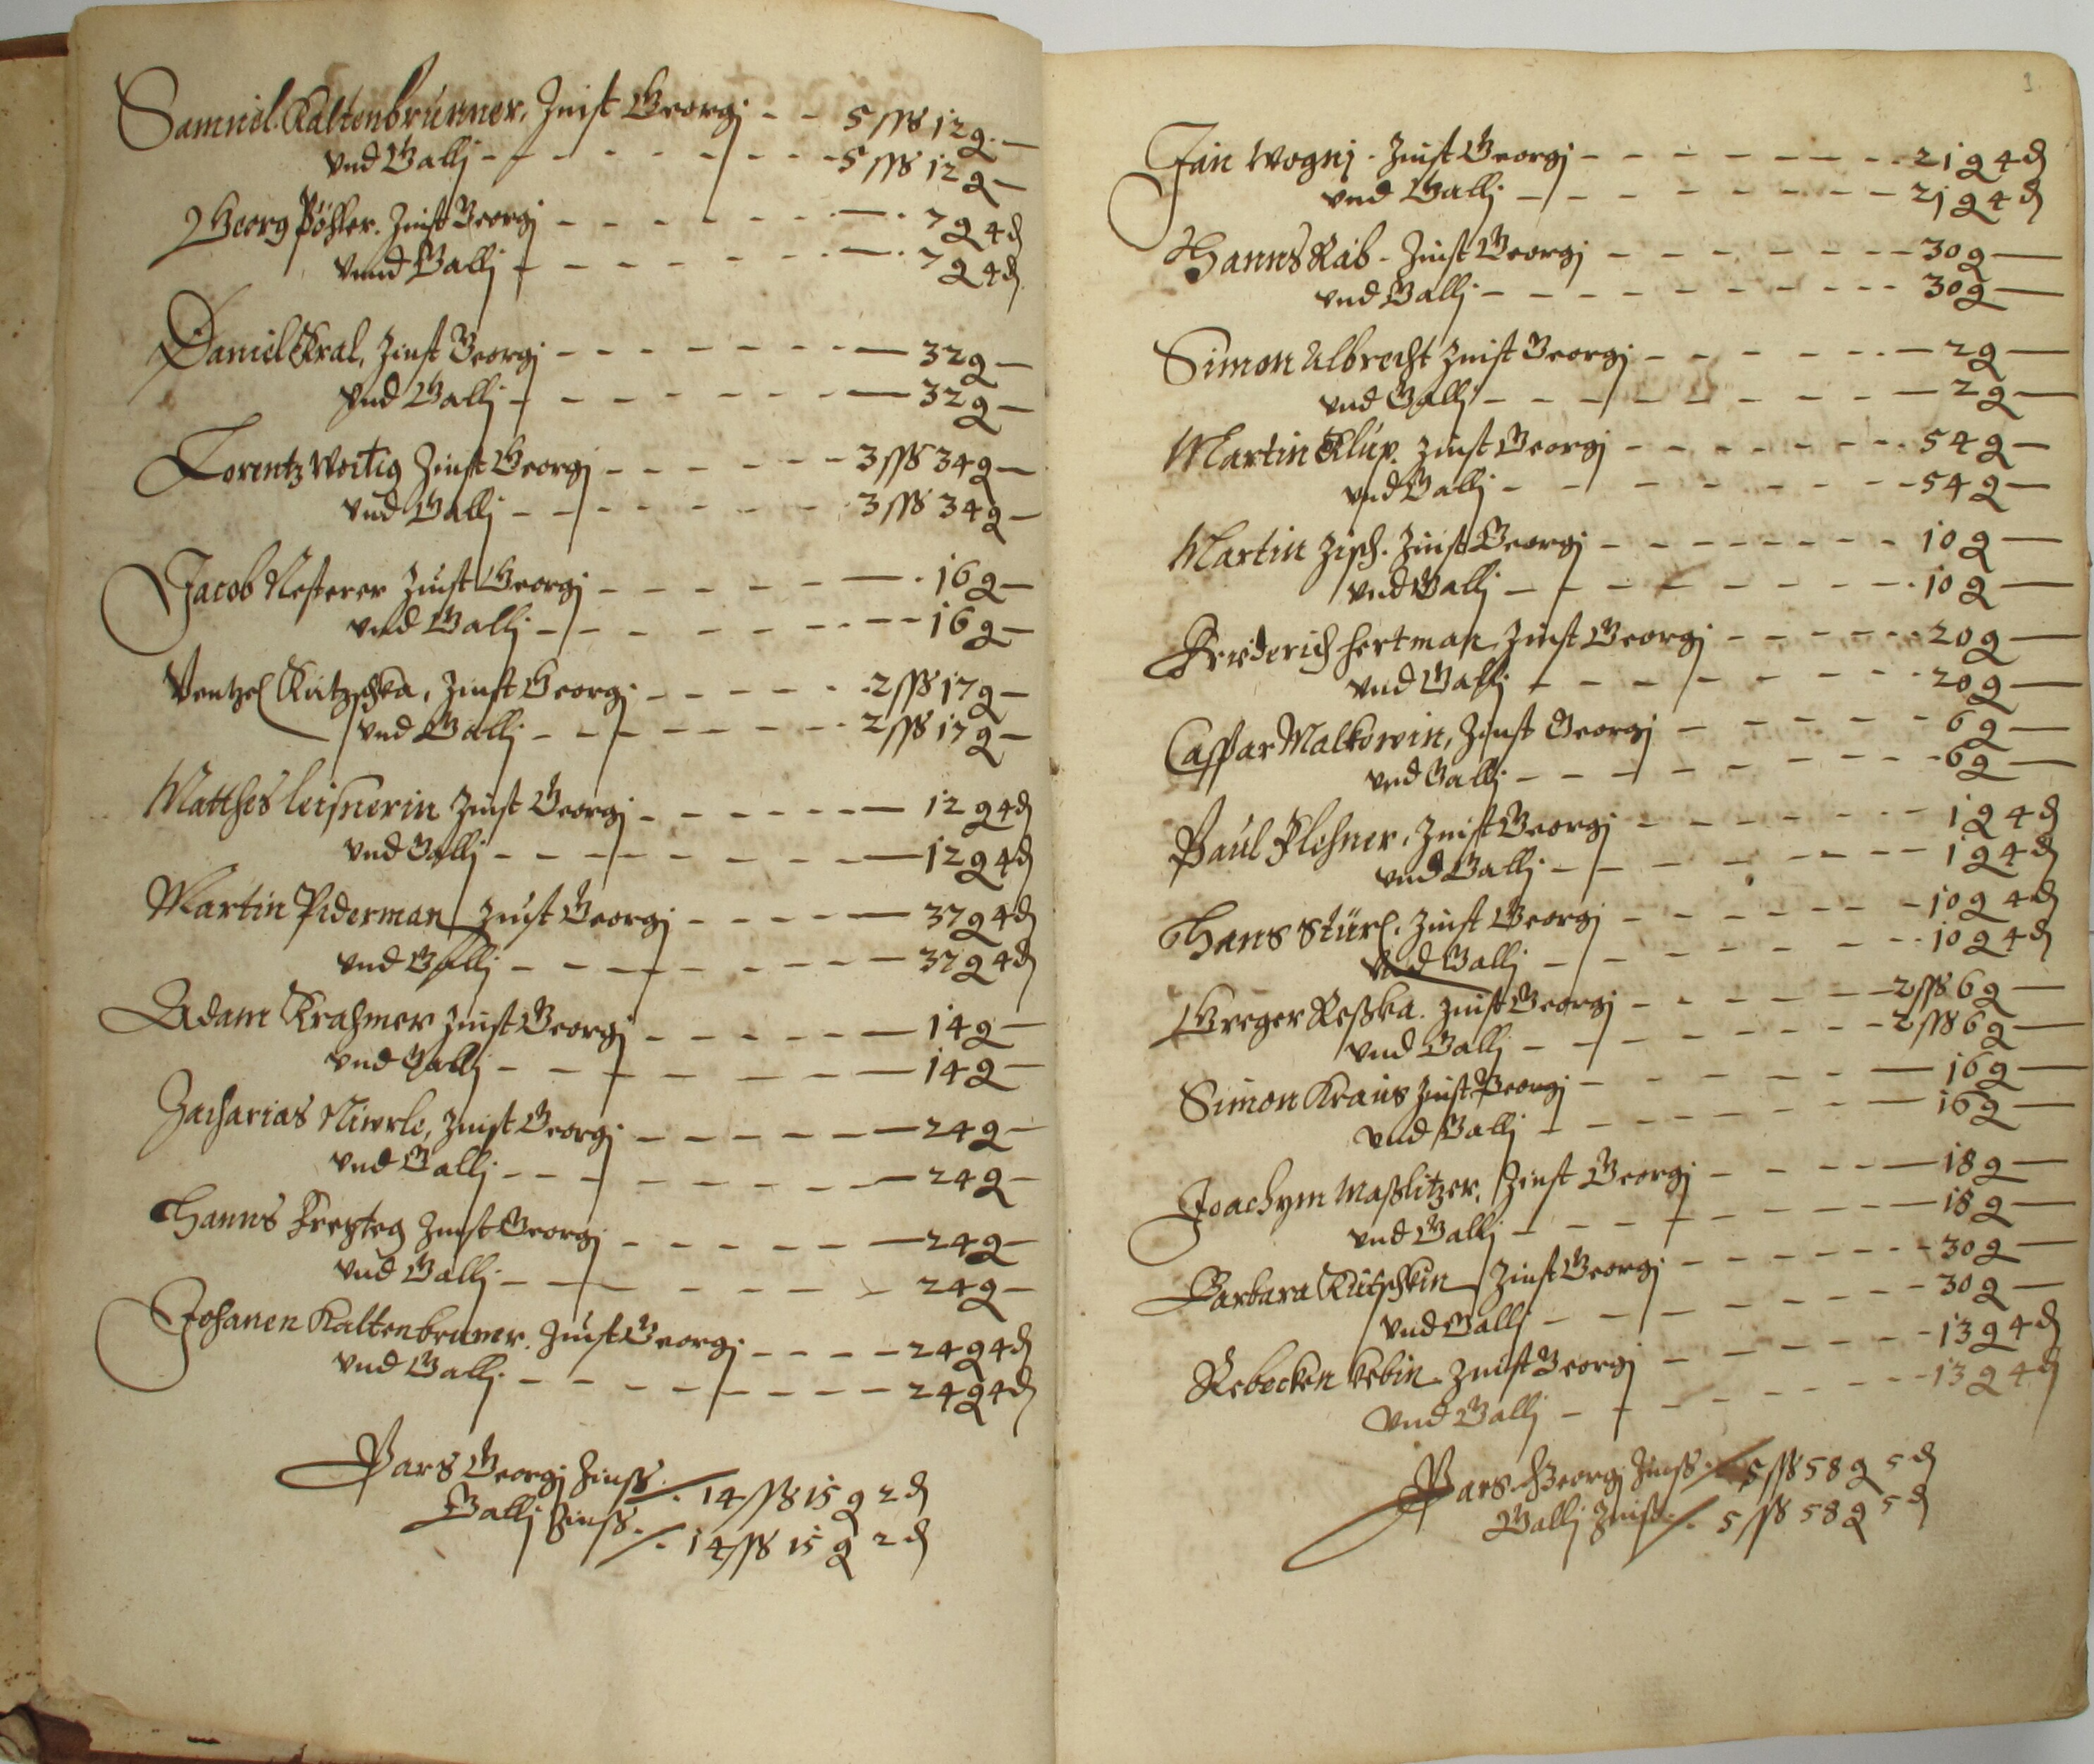 Samuel Kaltenbrunner, Zinst Georgj - - 5 ßß 12 g. —
vnd Gallj - - - - - - - - - 5 ßß 12 g —
Georg Pöhler. Zinst Georgj - - - - - - — . 7 g 4 ₰
vnnd Gallj - - - - - - - — . 7 g 4 ₰
Daniel Kral, Zinst Georgj - - - - - - - — 32 g —
vnd Gallj - - - - - - - — 32 g —
Lorentz Woitig Zinst Georgj - - - - - - - 3 ßß 34 g —
vnd Gallj - - - - - - - - 3 ßß 34 g —
Jacob Nesterer Zinst Georgj - - - - - - — . 16 g —
vnd Gallj - - - - - - - - - 16 g —
Ventzel Kutzschka, Zinst Georgj - - - - - - 2 ßß 17 g —
vnd Gallj - - - - - - - - 2 ßß 17 g —
Matthes leisnerin Zinst Georgj - - - - - - — 12 g 4 ₰
vnd Gallj - - - - - - - - — 12 g 4 ₰
Martin Piderman Zinst Georgj - - - - - — 37 g 4 ₰
vnd Gallj - - - - - - - - - — 37 g 4 ₰
Adam Krahmer Zinst Georgj - - - - - - — 14 g —
vnd Gallj - - - - - - - - — 14 g —
Zacharias Niwrle, Zinst Georgj - - - - - - — 24 g —
vnd Gallj - - - - - - - - — 24 g —
Hanns Freyteg Zinst Georgj - - - - - - — 24 g —
vnd Gallj - - - - - - - 24 g —
Johanen Kaltenbruner. Zinst Georgj - - - - - 24 g 4 ₰
vnd Gallj. - - - - - - - - - 24 g 4 ₰
Pars Georgj Zinss ./. 14 ßß 15 g 2 ₰
Gallj Zinss. ./. 14 ßß 15 g 2 ₰
3
Jan Wognj. Zinst Georgj - - - - - - - - - 21 g 4 ₰
vnd Gallj - - - - - - - - - 21 g 4 ₰
Hanns Rab. Zinst Georgj - - - - - - - - 30 g —
vnd Gallj - - - - - - - - - - 30 g —
Simon Albrecht Zinst Georgj - - - - - - — 2 g —
vnd Gallj - - - - - - - - - — 2 g —
Martin Klup. Zinst Georgj - - - - - - - - 54 g —
vnd Gallj - - - - - - - - - 54 g —
Martin Zisch. Zinst Georgj - - - - - - - - 10 g —
vnd Gallj - - - - - - - - - . 10 g —
Friderich hertman Zinst Georgj - - - - - - 20 g —
vnd Gallj - - - - - - - - 20 g —
Caspar Malkowin, Zinst Georgj - - - - - - 6 g —
vnd Gallj - - - - - - - - - 6 g —
Paul Flehner, Zinst Georgj - - - - - - - 1 g 4 ₰
vnd Gallj - - - - - - - - - 1 g 4 ₰
Hans Stürl. Zinst Georgj - - - - - - - 10 g 4 ₰
vnd Gallj - - - - - - - - 10 g 4 ₰
Greger Reßka. Zinst Georgj - - - - - - 2 ßß 6 g —
vnd Gallj - - - - - - - - 2 ßß 6 g —
Simon Kraus Zinst Georgj - - - - - - — 16 g —
vnd Gallj - - - - - - - — 16 g —
Joachym Maßlitzer. Zinst Georgj - - - - — 18 g —
vnd Gallj - - - - - - - - — 18 g —
Barbara Kutschkin Zinst Georgj - - - - - - 30 g —
vnd Gallj - - - - - - - - 30 g —
Rebecken kebin. Zinst Georgj - - - - - - 13 g 4 ₰
Vnd Gallj - - - - - - - - 13 g 4 ₰
Pars Georgj Zinss ./. 5 ßß 58 g 5 ₰
Gallj Zinss ./. 5 ßß 58 g 5 ₰